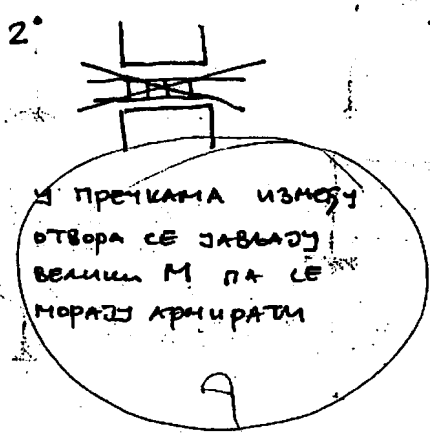 2°
У ПРЕЧКАМА ИЗМЕЂУ
ОТВОРА СЕ ЈАВЉАЈУ
ВЕЛИКИ М ПА СЕ
МОРАЈУ АРМИРАТИ